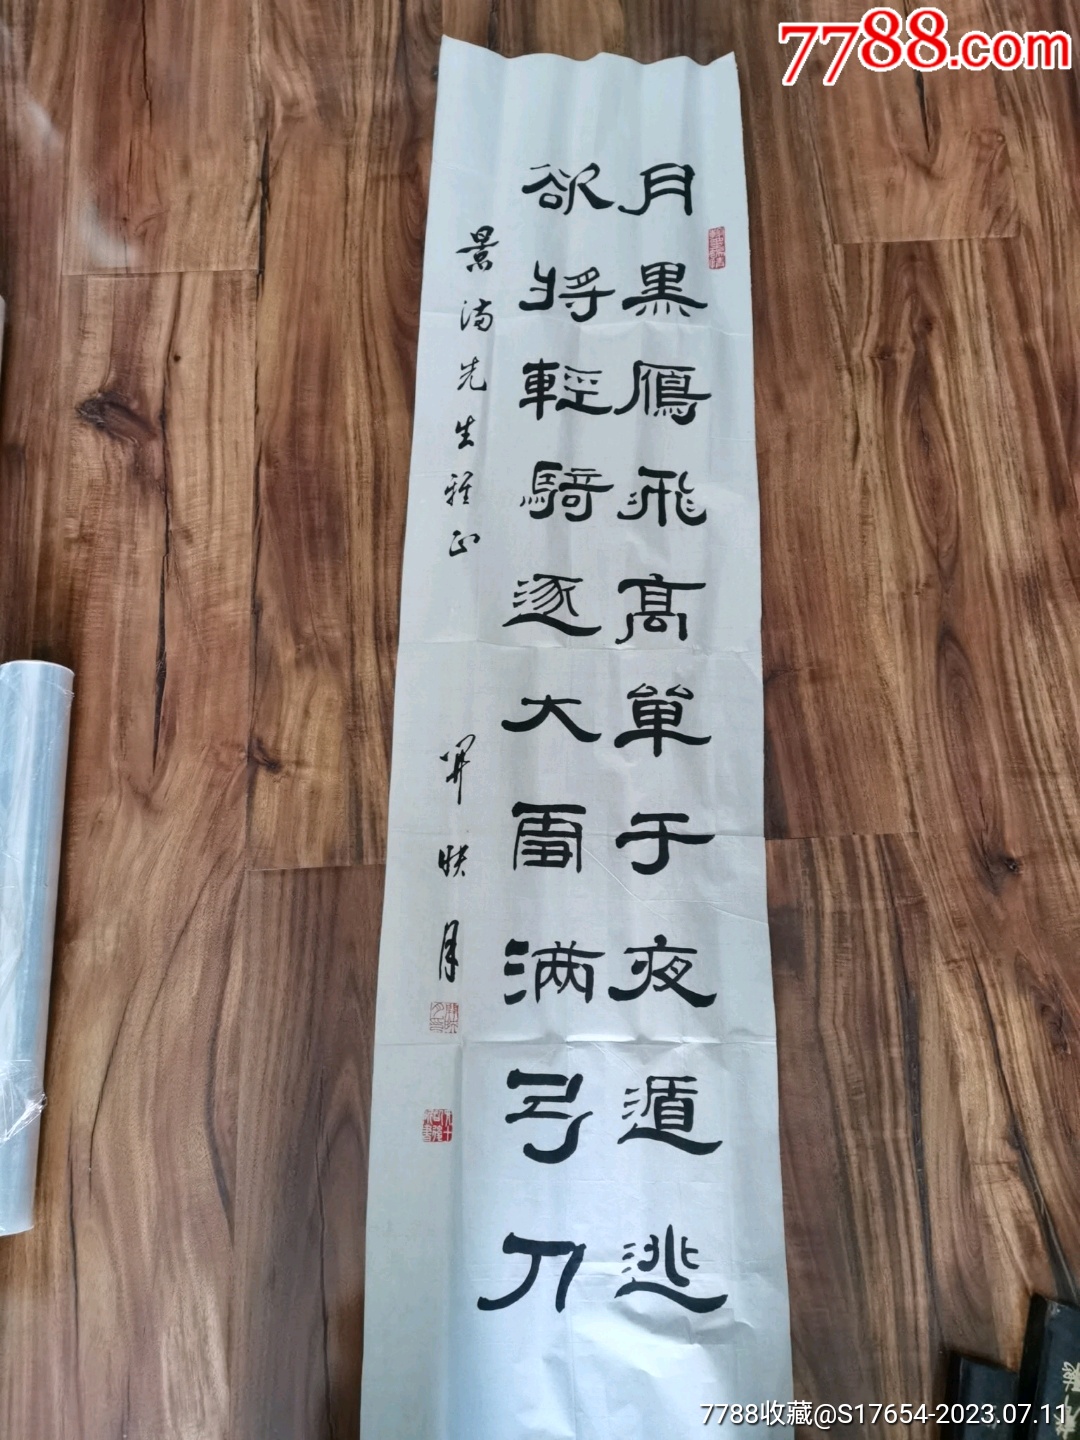 7788.com
月黑鴈飛高單于夜遁逃
欲将輕騎逐大雪满弓刀
景满先生雅正
7788收藏@S17654-2023.07.11